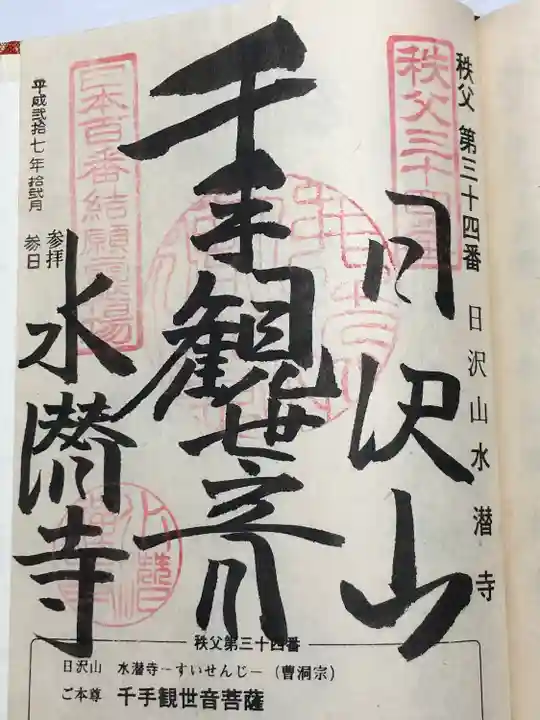 秩父 第三十四番 日沢山水潜寺
秩父三十四番
日沢山
千手観世音
水潜寺
日本百番結願霊場
平成弐拾七年拾弐月
参拝
参日
秩父第三十四番
日沢山 水潜寺-すいせんじ-(曹洞宗)
ご本尊 千手観世音菩薩